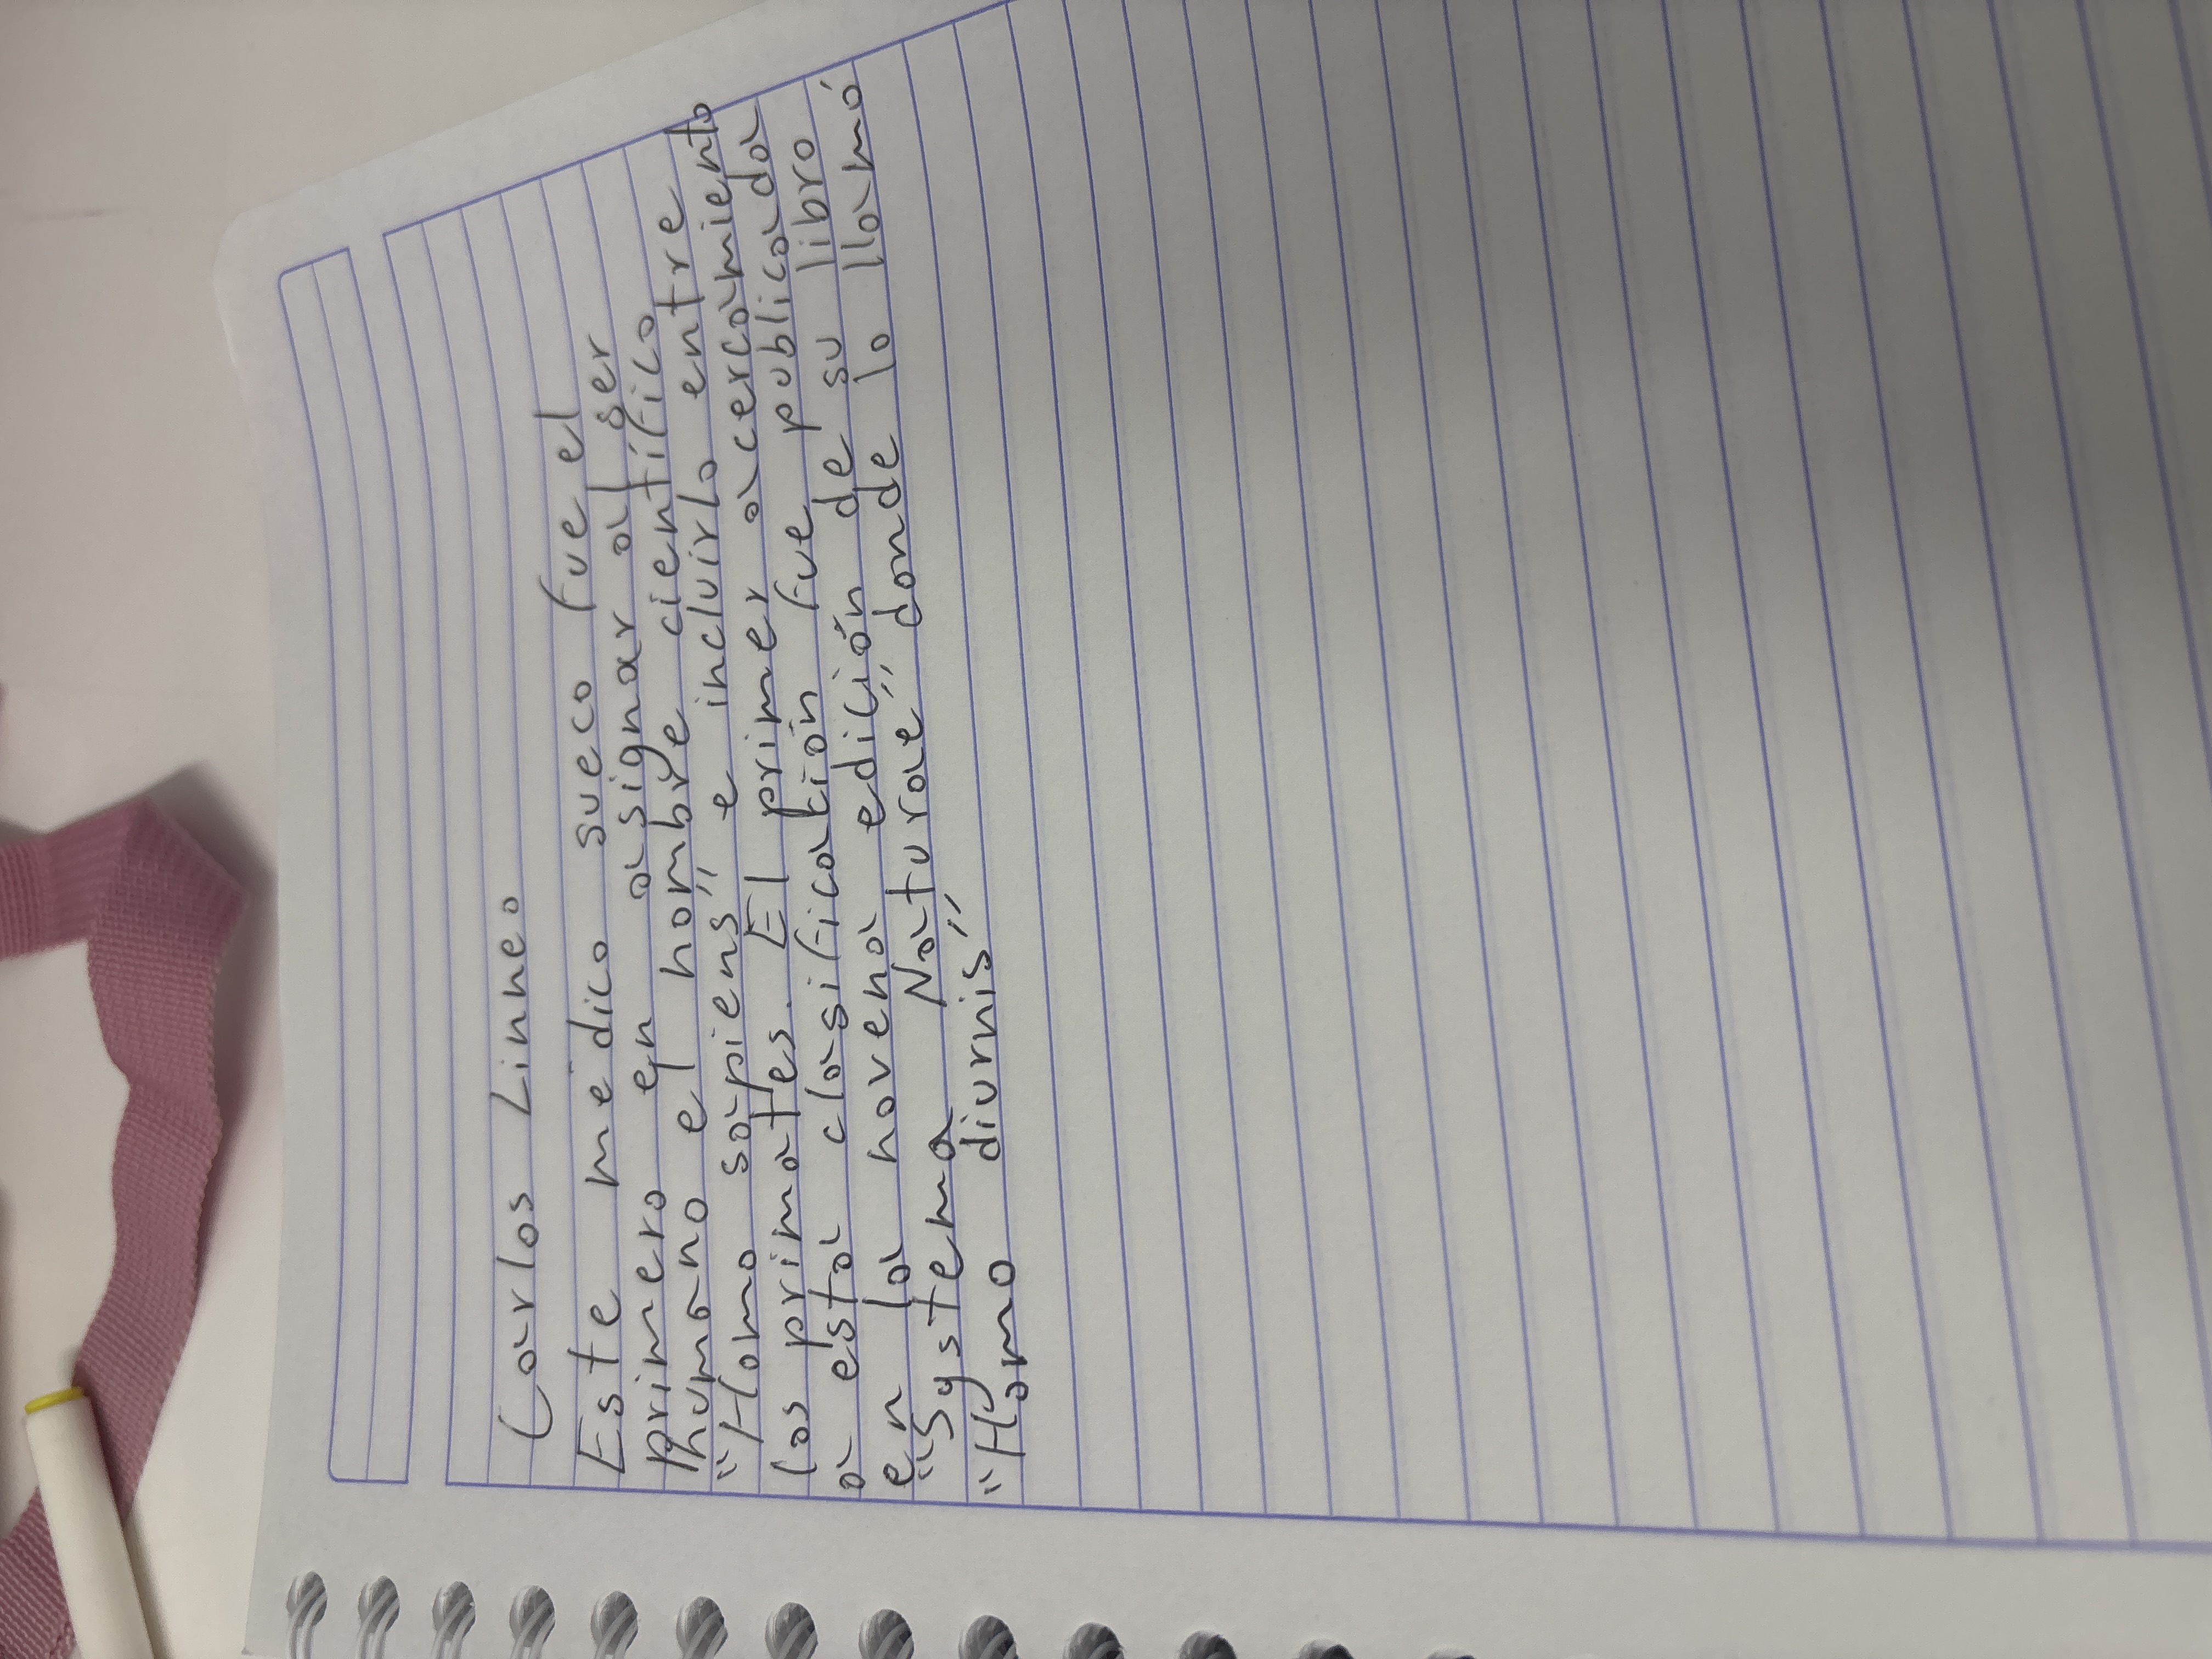 Carlos Linneo
Este médico sueco fue el
primero en asignar al ser
humano el nombre científico
"Homo sapiens" e incluirlo entre
los primates. El primer acercamiento
a esta clasificación fue publicada
en la novena edición de su libro
"Systema Naturae" donde lo llamó
"Homo diurnis"